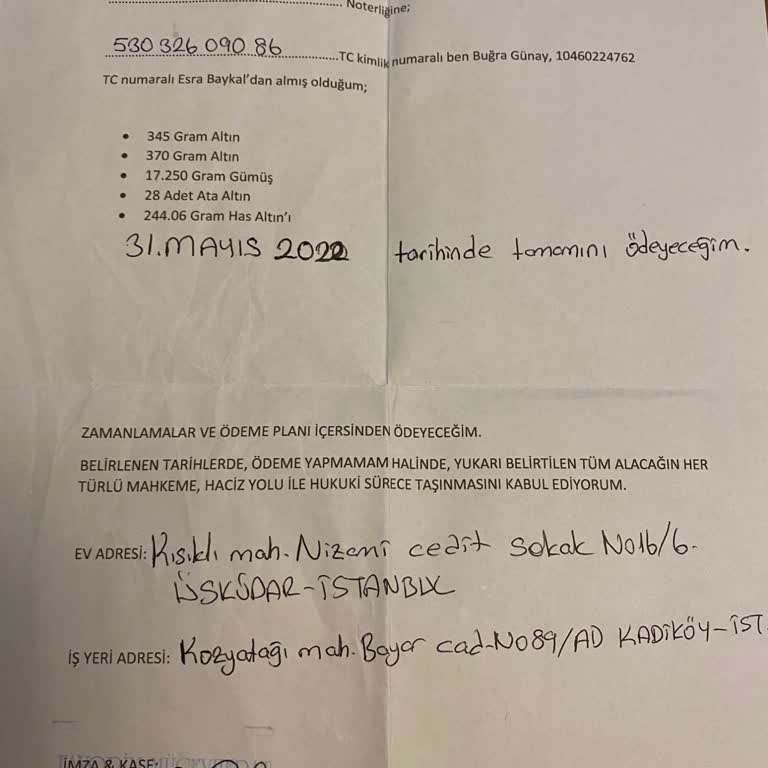 ........................................ Noterliğine;
530 326 090 86 ..............TC kimlik numaralı ben Buğra Günay, 10460224762
TC numaralı Esra Baykal'dan almış olduğum;
• 345 Gram Altın
• 370 Gram Altın
• 17.250 Gram Gümüş
• 28 Adet Ata Altın
• 244.06 Gram Has Altın'ı
31.MAYIS 2022 tarihinde tamamını ödeyeceğim.
ZAMANLAMALAR VE ÖDEME PLANI İÇERSİNDEN ÖDEYECEĞİM.
BELİRLENEN TARİHLERDE, ÖDEME YAPMAMAM HALİNDE, YUKARI BELİRTİLEN TÜM ALACAĞIN HER
TÜRLÜ MAHKEME, HACİZ YOLU İLE HUKUKİ SÜRECE TAŞINMASINI KABUL EDİYORUM.
EV ADRESİ: Kısıklı mah. Nizami cedit sokak No16/6.
ÜSKÜDAR-İSTANBUL
İŞ YERİ ADRESİ: Kozyatağı mah. Bayar cad. No89/AD KADIKÖY-İST.
İMZA & KAŞE: